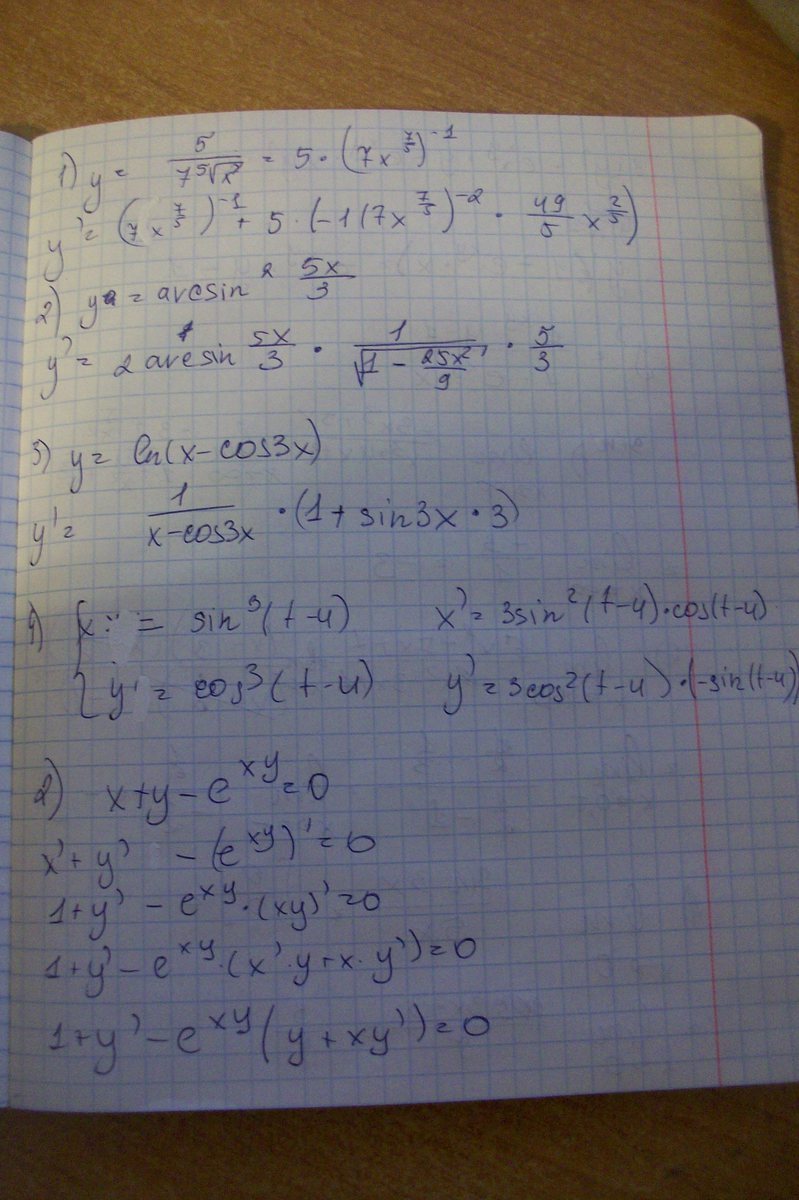 1) y = 5/(7⁵√x⁷) = 5 · (7x^(7/5))^(-1)
y' = (7x^(7/5))^(-1) + 5 · (-1(7x^(7/5))^(-2) · 49/5 x^(2/5))
2) y = arcsin² 5x/3
y' = 2 arcsin 5x/3 · 1/√(1 - 25x²/9) · 5/3
3) y = ln(x-cos3x)
y' = 1/(x-cos3x) · (1 + sin3x · 3)
{ x = sin³(t-4) x' = 3sin²(t-4)·cos(t-4)
{ y' = cos³(t-4) y' = 3cos²(t-4)·(-sin(t-4))
2) x+y-e^(xy)=0
x'+y' - (e^(xy))'=0
1+y' - e^(xy)·(xy)'=0
1+y'-e^(xy)·(x'·y+x·y')=0
1+y'-e^(xy)(y+xy')=0